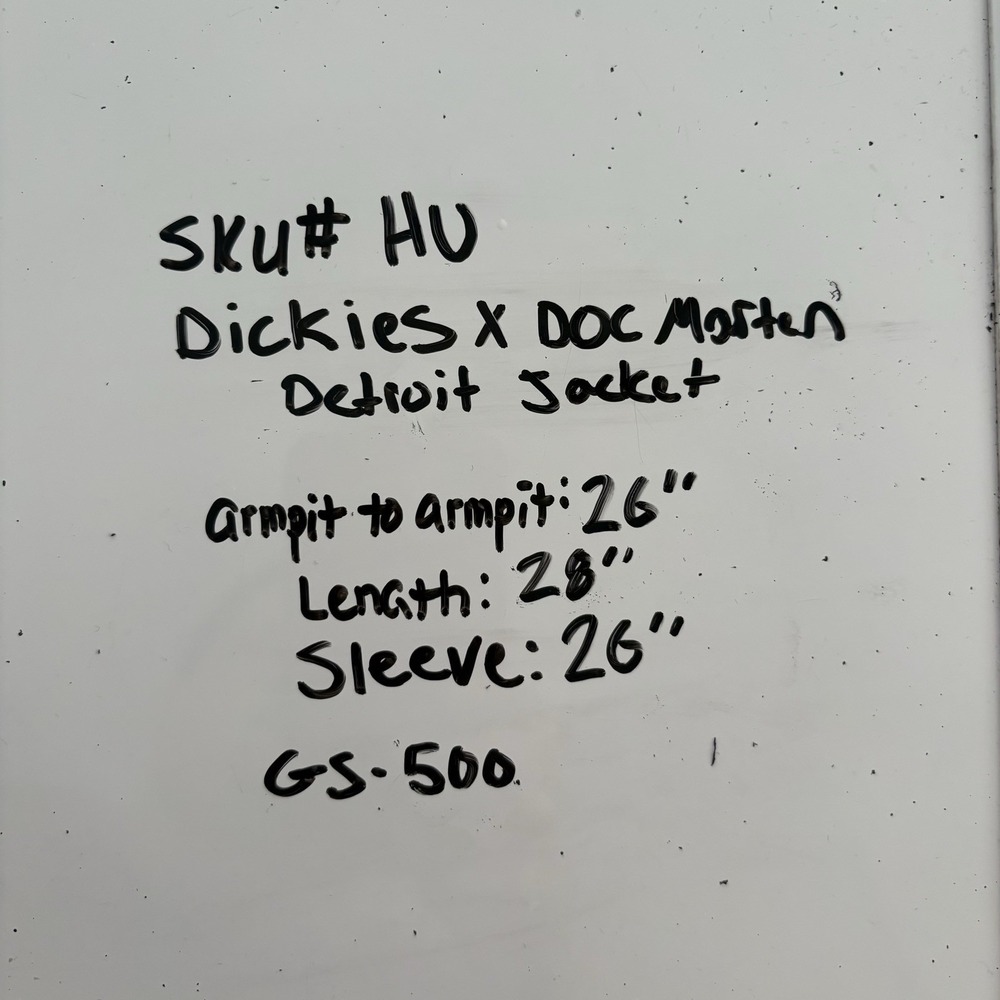 SKU# HU
Dickies X DOC Marten
Detroit Jacket
armpit to armpit: 26"
Length: 28"
Sleeve: 26"
GS-500